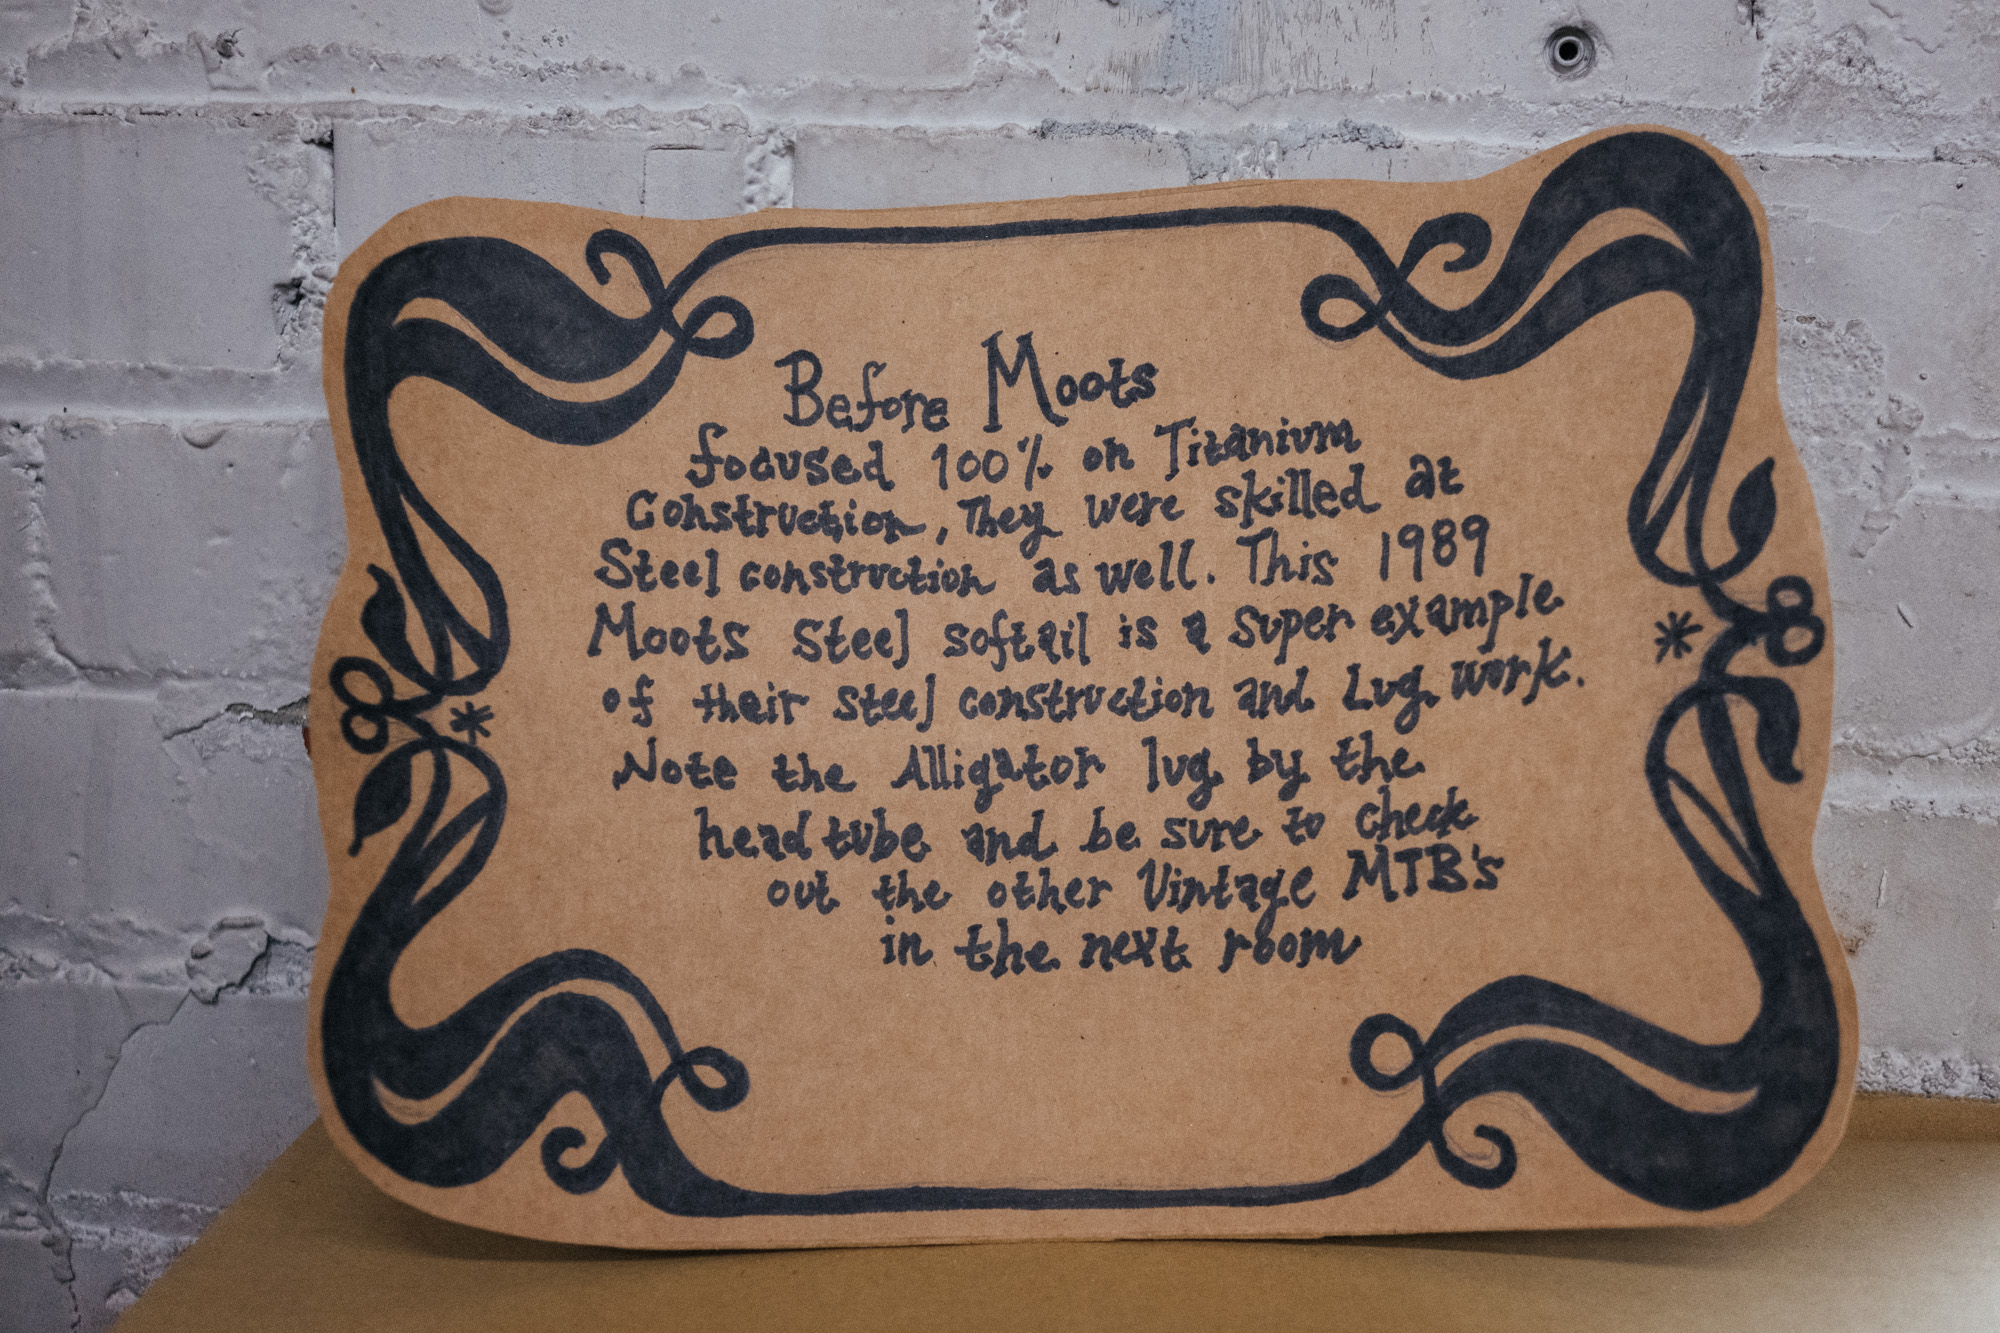 Before Moots
focused 100% on Titanium
Construction, They were skilled at
Steel construction as well. This 1989
Moots Steel softail is a super example
of their steel construction and Lug work.
Note the Alligator lug by the
head tube and be sure to check
out the other Vintage MTB's
in the next room